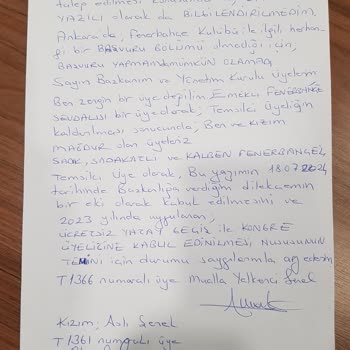 talep edilmesi
YAZILI olarak da BİLGİLENDİRİLMEDİM.
Ankara'da, Fenerbahçe Kulübü ile ilgili herhan-
gi bir BAŞVURU BÖLÜMÜ olmadığı için,
BAŞVURU YAPMAM MÜMKÜN OLAMADI
Sayın Başkanım ve Yönetim Kurulu Üyelerim
Ben zengin bir üye değilim, EMEKLİ FENERBAHÇE
SEVDALISI bir üye olarak; Temsilci Üyeliğin
kaldırılması sonucunda, Ben ve KIZIM
MAĞDUR olan üyeleriz
SADIK, SADAKATLİ ve KALBEN FENERBAHÇELİ
Temsilci Üye olarak, Bu yazımın 18.07.2024
tarihinde Başkanlığa verdiğim dilekçemin
bir eki olarak kabul edilmesini ve
2023 yılında uygulanan,
ÜCRETSİZ YATAY GEÇİŞ ile KONGRE
ÜYELİĞİNE KABUL EDİLMEMİZ, HUSUSUNUN
TEMİNİ için durumu saygılarımla arz ederim
T1366 numaralı üye Mualla Yelkenci Şenel
Kızım, Aslı Şenel
T1361 numaralı üye